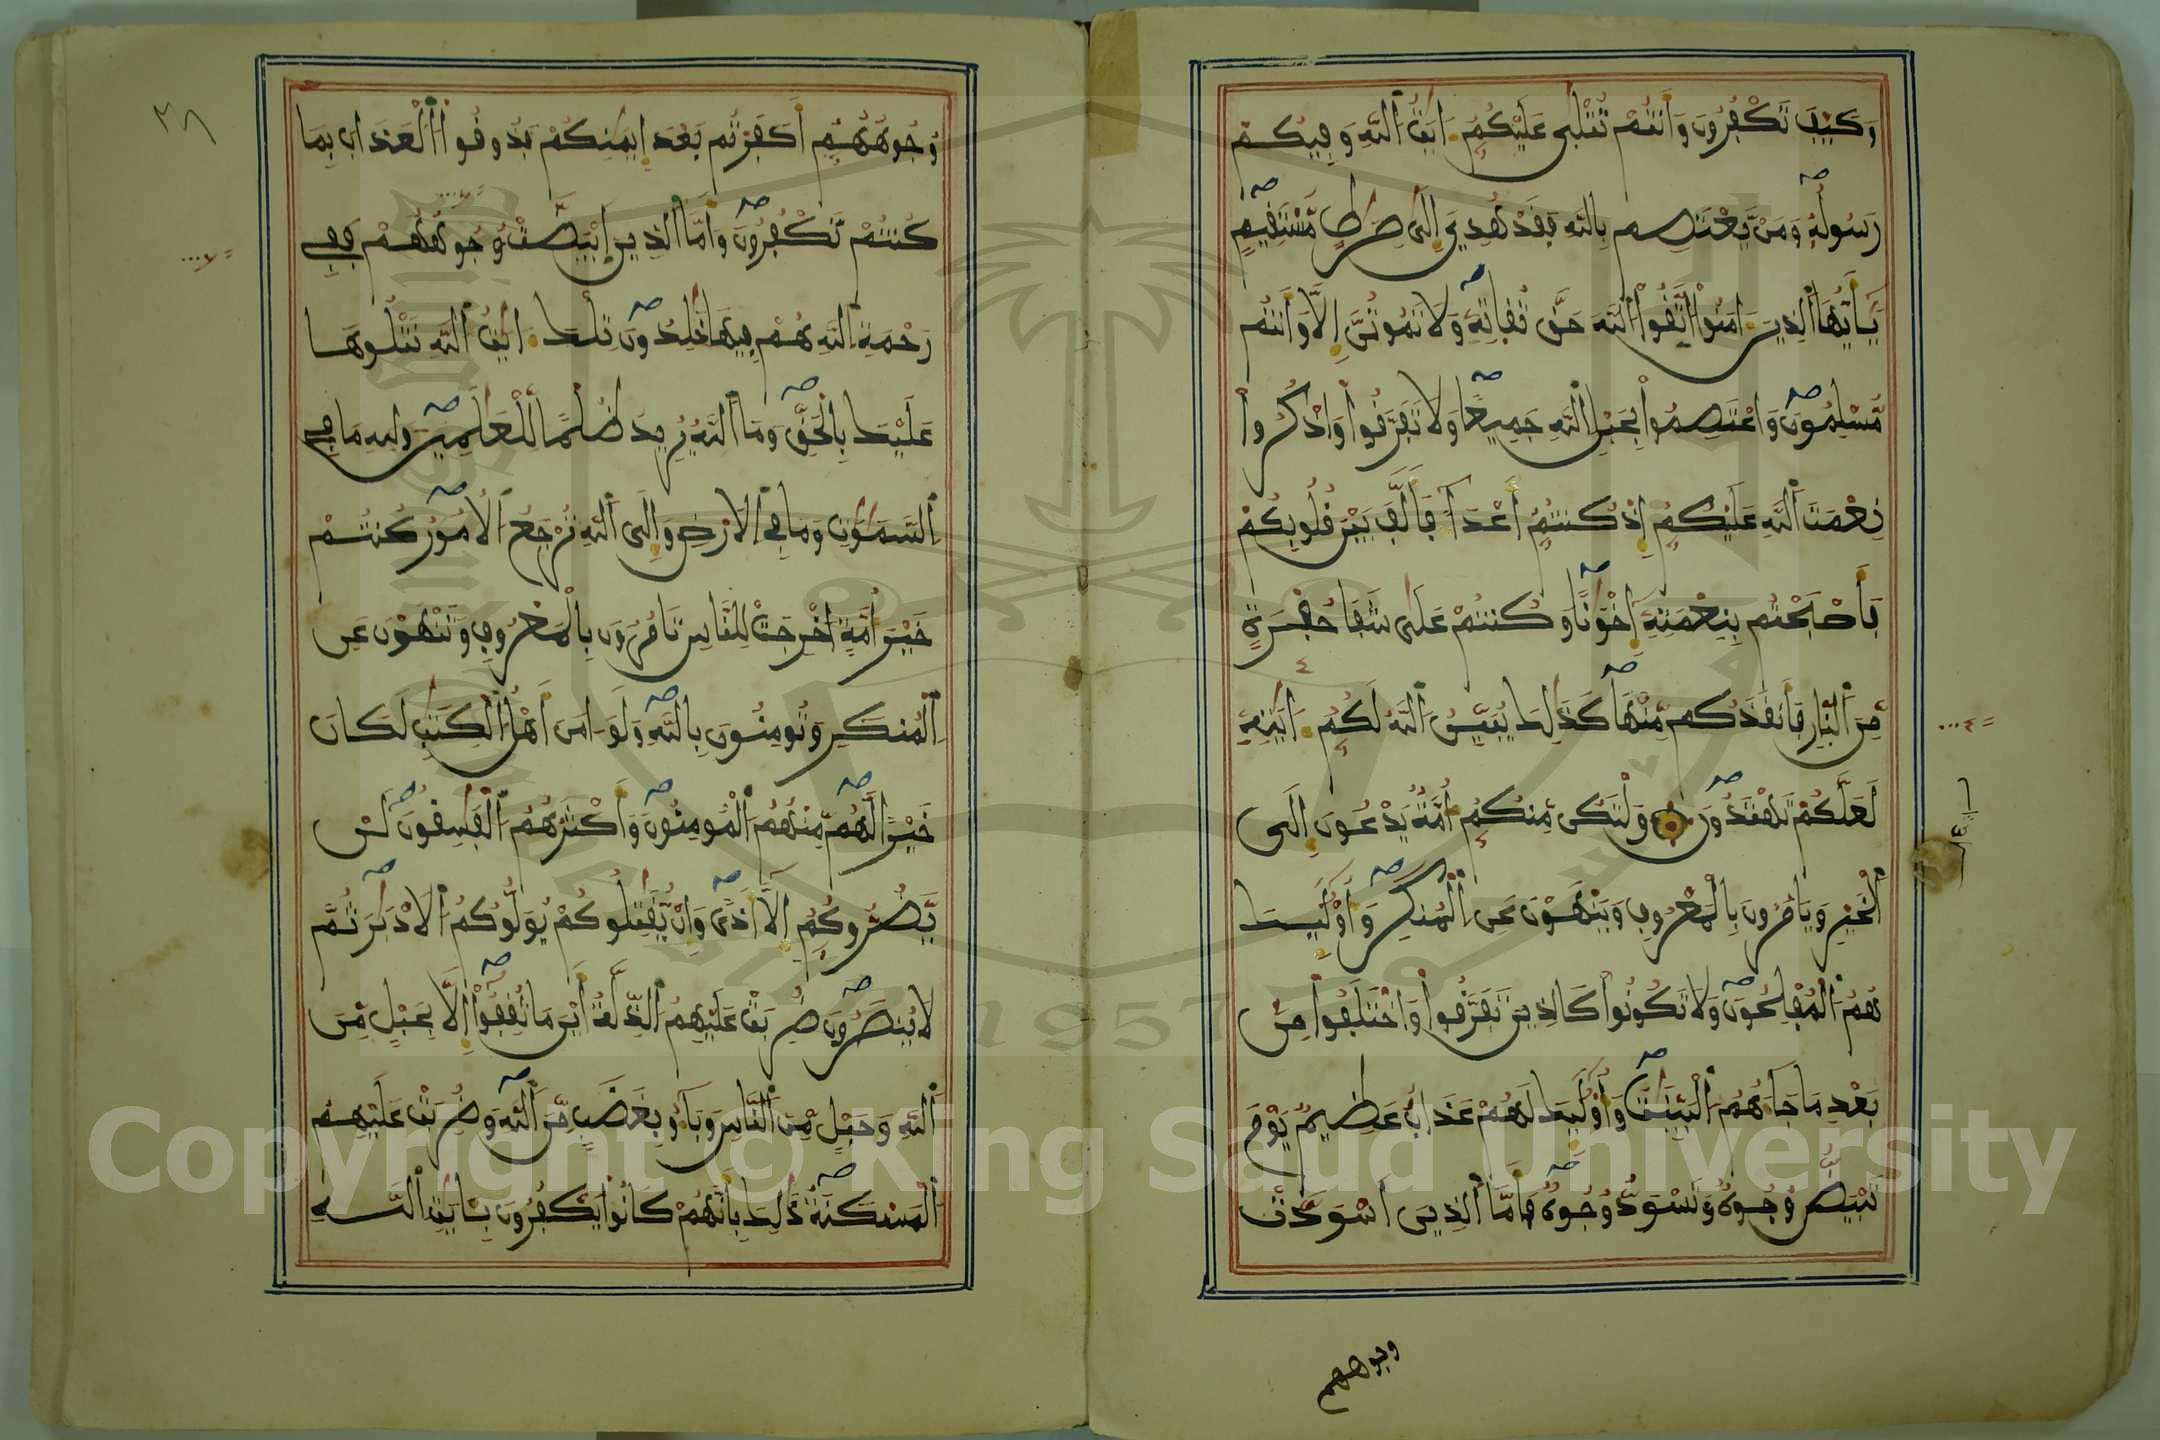 وَكَيْفَ تَكْفُرُونَ وَأَنتُمْ تُتْلَى عَلَيْكُمُ ءَايَٰتُ اللَّهِ وَفِيكُمْ
رَسُولُهُ وَمَنْ يَّعْتَصِم بِاللَّهِ فَقَدْ هُدِيَ إِلَى صِرَٰطٍ مُّسْتَقِيمٍ
يَٰأَيُّهَا الَّذِينَ ءَامَنُوا اتَّقُوا اللَّهَ حَقَّ تُقَاتِهِ وَلَا تَمُوتُنَّ إِلَّا وَأَنتُم
مُّسْلِمُونَ وَاعْتَصِمُوا بِحَبْلِ اللَّهِ جَمِيعًا وَلَا تَفَرَّقُوا وَاذْكُرُوا
نِعْمَتَ اللَّهِ عَلَيْكُمُ إِذْ كُنتُمُ أَعْدَآءً فَأَلَّفَ بَيْنَ قُلُوبِكُمْ
فَأَصْبَحْتُم بِنِعْمَتِهِ إِخْوَٰنًا وَكُنتُمْ عَلَى شَفَا حُفْرَةٍ
مِّنَ النَّارِ فَأَنقَذَكُم مِّنْهَا كَذَٰلِكَ يُبَيِّنُ اللَّهُ لَكُمُ ءَايَٰتِهِ
لَعَلَّكُمْ تَهْتَدُونَ وَلْتَكُن مِّنكُمُ أُمَّةٌ يَدْعُونَ إِلَى
الْخَيْرِ وَيَامُرُونَ بِالْمَعْرُوفِ وَيَنْهَوْنَ عَنِ الْمُنكَرِ وَأُوْلَٰئِكَ
هُمُ الْمُفْلِحُونَ وَلَا تَكُونُوا كَالَّذِينَ تَفَرَّقُوا وَاخْتَلَفُوا مِن
بَعْدِ مَا جَآءَهُمُ الْبَيِّنَٰتُ وَأُوْلَٰئِكَ لَهُمْ عَذَابٌ عَظِيمٌ يَوْمَ
تَبْيَضُّ وُجُوهٌ وَتَسْوَدُّ وُجُوهٌ فَأَمَّا الَّذِينَ اسْوَدَّتْ
وجوههم
وُجُوهُهُمُ أَكَفَرْتُم بَعْدَ إِيمَٰنِكُمْ فَذُوقُوا الْعَذَابَ بِمَا
كُنتُمْ تَكْفُرُونَ وَأَمَّا الَّذِينَ ابْيَضَّتْ وُجُوهُهُمْ فَفِي
رَحْمَةِ اللَّهِ هُمْ فِيهَا خَٰلِدُونَ تِلْكَ ءَايَٰتُ اللَّهِ نَتْلُوهَا
عَلَيْكَ بِالْحَقِّ وَمَا اللَّهُ يُرِيدُ ظُلْمًا لِّلْعَٰلَمِينَ وَلِلهِ مَا فِي
السَّمَٰوَٰتِ وَمَا فِي الَارْضِ وَإِلَى اللَّهِ تُرْجَعُ الُامُورُ كُنتُمْ
خَيْرَ أُمَّةٍ أُخْرِجَتْ لِلنَّاسِ تَامُرُونَ بِالْمَعْرُوفِ وَتَنْهَوْنَ عَنِ
الْمُنكَرِ وَتُومِنُونَ بِاللَّهِ وَلَوَ ءَامَنَ أَهْلُ الْكِتَٰبِ لَكَانَ
خَيْرًا لَّهُم مِّنْهُمُ الْمُومِنُونَ وَأَكْثَرُهُمُ الْفَٰسِقُونَ لَنْ
يَّضُرُّوكُمُ إِلَّا أَذًى وَإِنْ يُّقَٰتِلُوكُمْ يُوَلُّوكُمُ الَادْبَٰرَ ثُمَّ
لَا يُنصَرُونَ ضُرِبَتْ عَلَيْهِمُ الذِّلَّةُ أَيْنَ مَا ثُقِفُوا إِلَّا بِحَبْلٍ مِّنَ
اللَّهِ وَحَبْلٍ مِّنَ النَّاسِ وَبَآءُو بِغَضَبٍ مِّنَ اللَّهِ وَضُرِبَتْ عَلَيْهِمُ
الْمَسْكَنَةُ ذَٰلِكَ بِأَنَّهُمْ كَانُوا يَكْفُرُونَ بِـَٔايَٰتِ اللَّهِ
Copyright © King Saud University
1957